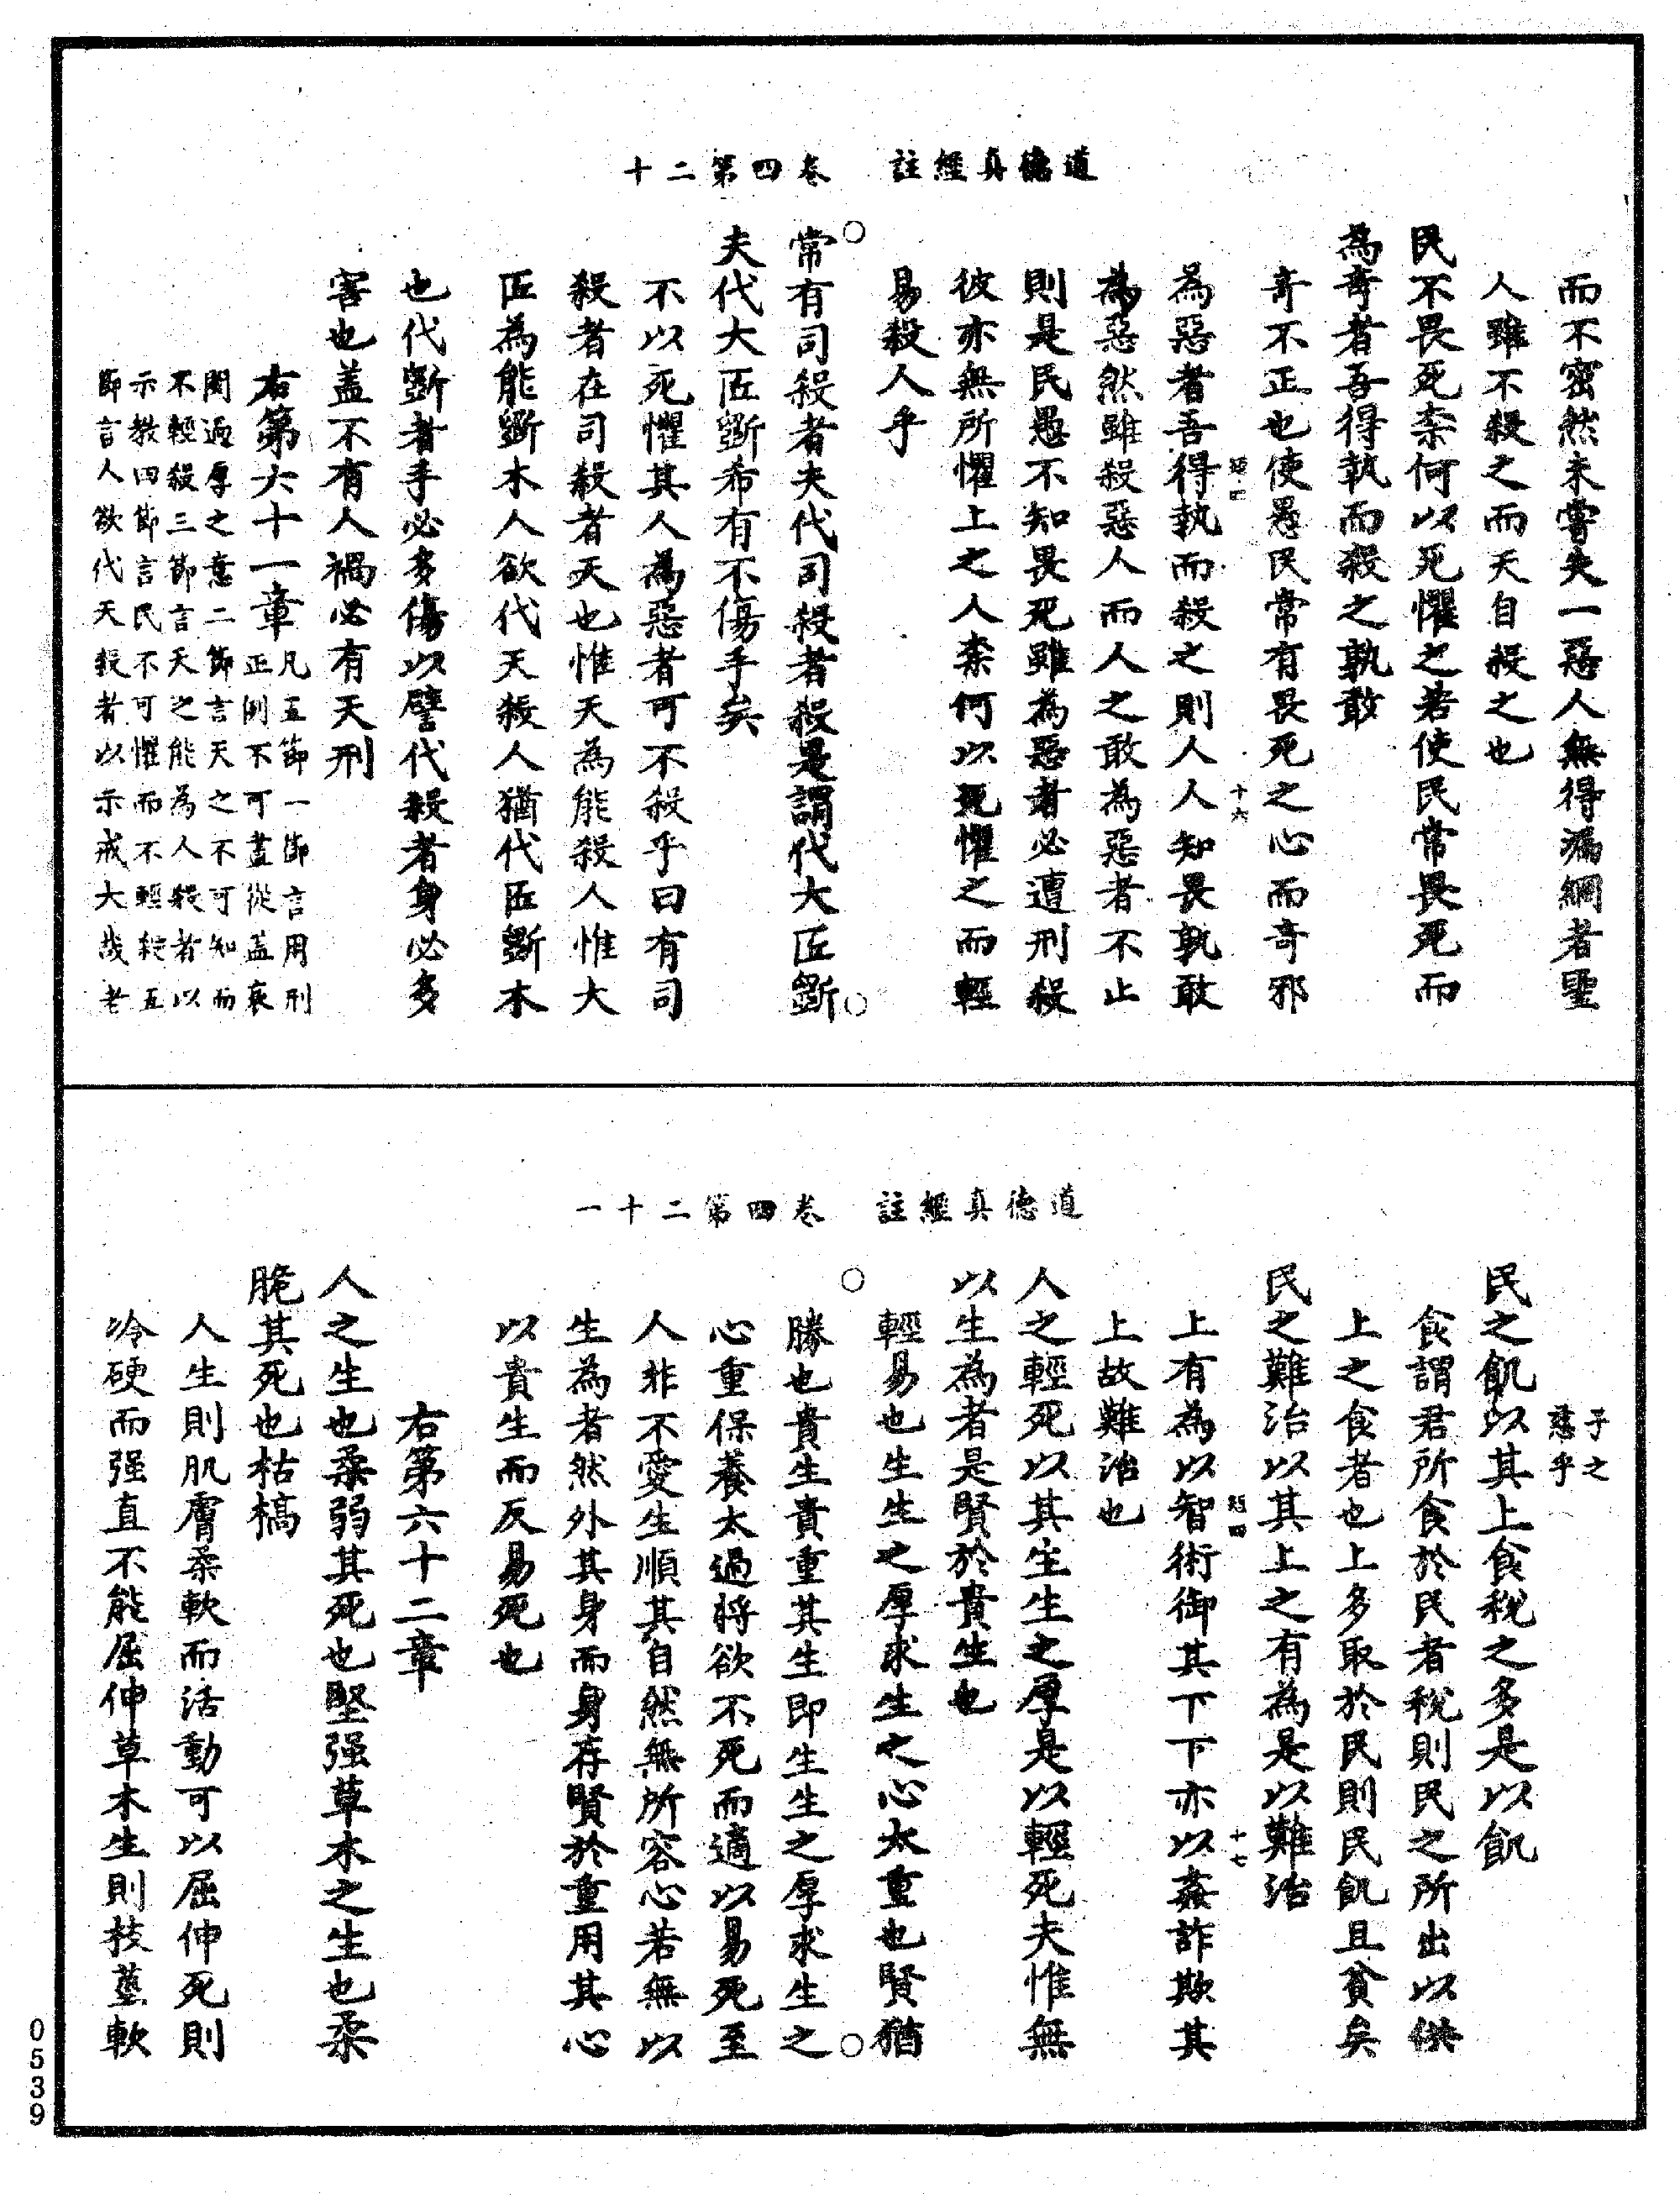 道德真經註　卷四第二十
而不密然未嘗失一惡人無得漏網者聖
人雖不殺之而天自殺之也
民不畏死柰何以死懼之若使民常畏死而
為奇者吾得執而殺之孰敢
奇不正也使愚民常有畏死之心而奇邪
為惡者吾得執而殺之則人人知畏孰敢
為惡然雖殺惡人而人之敢為惡者不止
則是民愚不知畏死雖為惡者必遭刑殺
彼亦無所懼上之人柰何以死懼之而輕
易殺人乎
常有司殺者夫代司殺者殺是謂代大匠斲
夫代大匠斲希有不傷手矣
不以死懼其人為惡者可不殺乎曰有司
殺者在司殺者天也惟天為能殺人惟大
匠為能斲木人欲代天殺人猶代匠斲木
也代斲者手必多傷以譬代殺者身必多
害也蓋不有人禍必有天刑
右第六十一章
凡五節一節言用刑
正例不可盡從蓋衰
閔過厚之意二節言天之不可知而
不輕殺三節言天之能為人殺者以
示教四節言民不可懼而不輕殺五
節言人欲代天殺者以示戒大哉老
十六
道德真經註　卷四第二十一
子之
慈乎
民之飢以其上食稅之多是以飢
食謂君所食於民者稅則民之所出以供
上之食者也上多取於民則民飢且貧矣
民之難治以其上之有為是以難治
上有為以智術御其下下亦以姦詐欺其
上故難治也
人之輕死以其生生之厚是以輕死夫惟無
以生為者是賢於貴生也
輕易也生生之厚求生之心太重也賢猶
勝也貴生貴重其生即生生之厚求生之
心重保養太過將欲不死而適以易死至
人非不愛生順其自然無所容心若無以
生為者然外其身而身存賢於重用其心
以貴生而反易死也
右第六十二章
人之生也柔弱其死也堅强草木之生也柔
脆其死也枯槁
人生則肌膚柔軟而活動可以屈伸死則
冷硬而强直不能屈伸草木生則枝莖軟
十七
0539